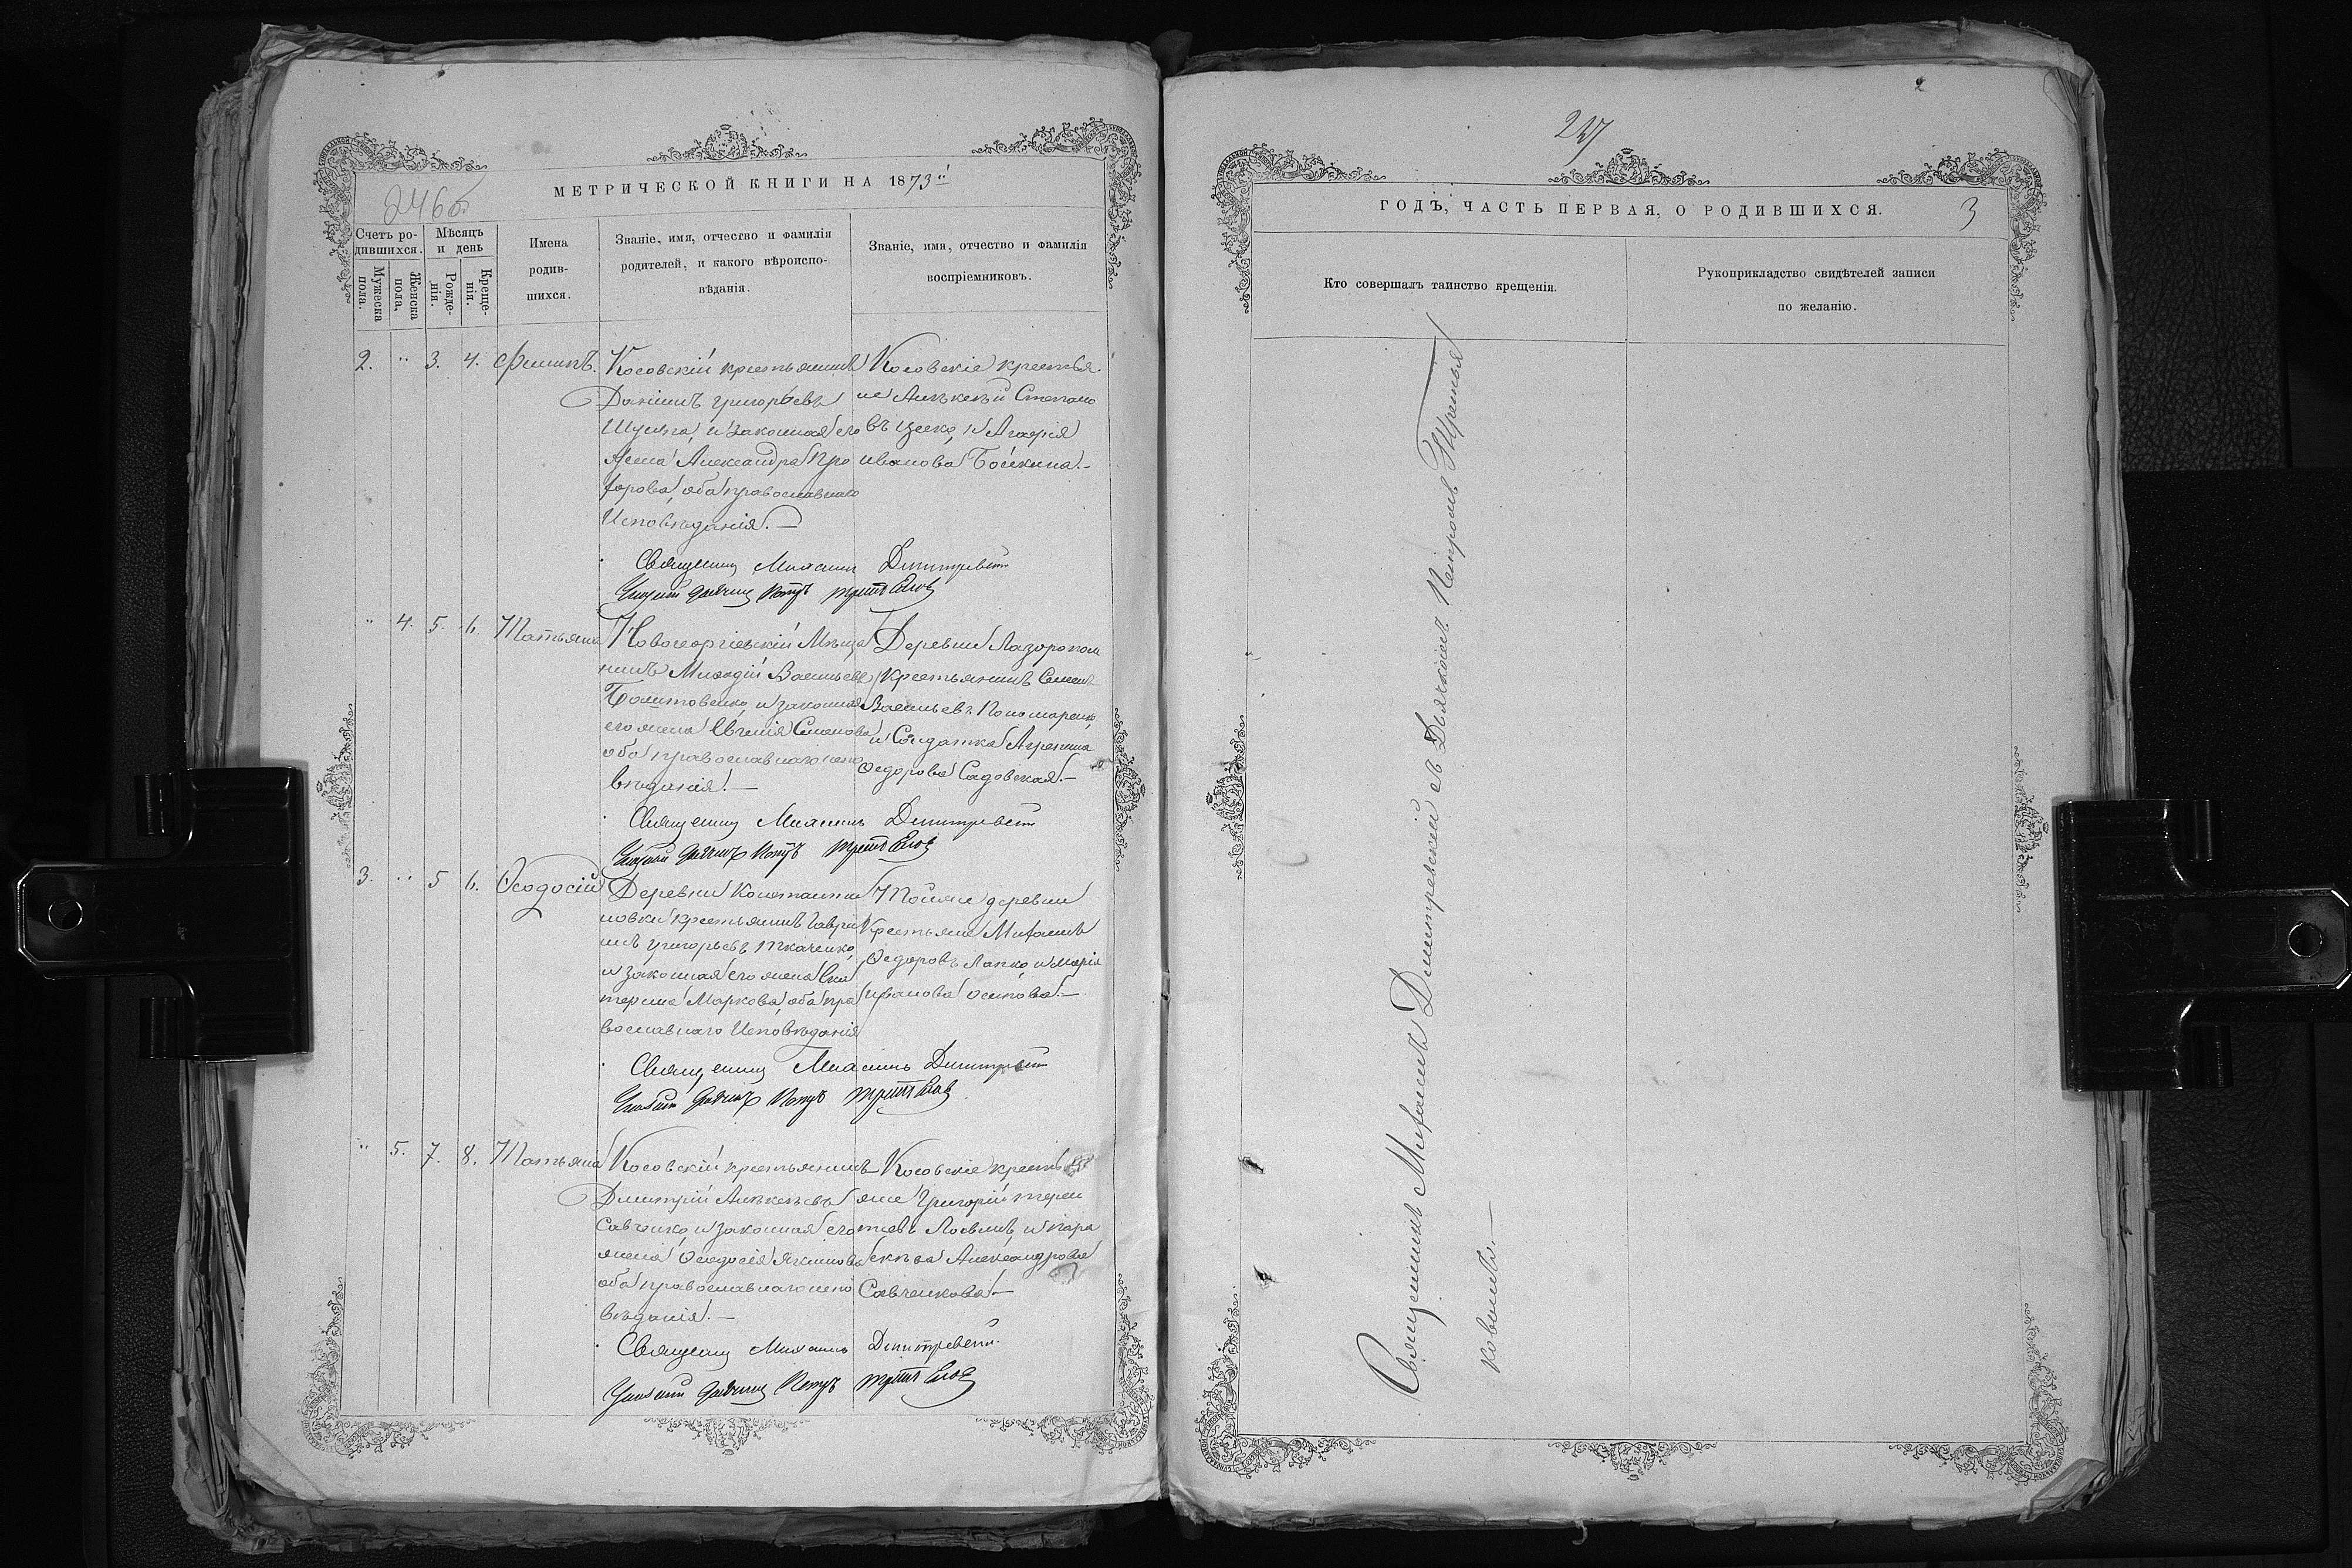 МЕТРИЧЕСКОЙ КНИГИ НА 1873й
246б
Счетъ ро-
дившихся.
Мужеска
пола.
Женска
пола.
Мѣсяцъ
и день
Рожде-
нія.
Креще-
нія.
Имена
родив-
шихся.
Званіе, имя, отчество и фамилія
родителей, и какого вѣроиспо-
вѣданія.
Званіе, имя, отчество и фамилія
воспріемниковъ.
2. " 3. 4. Филипъ.
Косовскій крестьянинъ
Даніилъ Григорьевъ
и законная его
жена Александра Про
хорова, оба православнаго
Исповѣданія.—
Косовскіе крестья
не Алексѣй Степано
въ и Агафія
Иванова Бойкина.-
Священникъ Михаилъ Димитревскій
Петръ
" 4. 5. 6. Татьяна
Новогеоргіевскій Мѣща
нинъ Меѳодій Васильевъ
и законная
его жена Евгенія Семенова
оба православнаго испо
вѣданія.—
Деревни
крестьянинъ Семенъ
Васильевъ Пономаренко,
и Солдатка Агрепина
Ѳедорова Садовская.—
Священникъ Михаилъ Димитревскій
Петръ
3. " 5 6. Ѳеодосій
Деревни Константи
новки крестьянинъ Гаврі
илъ Григорьевъ Ткаченко,
и законная его жена Ека
терина Маркова, оба пра
вославнаго Исповѣданія
Тойже деревни
Крестьяне Михаилъ
Ѳедоровъ Лапко, и Марія
Иванова Осипова.—
Священникъ Михаилъ Димитревскій
Петръ
" 5. 7. 8. Татьяна
Косовскій крестьянинъ
Дмитрій Алексѣевъ
Савченко, и законная его
жена Ѳеодосія Якимова
оба православнаго испо
вѣданія.—
Косовскіе кресть
яне Григорій Терен
тіевъ и Пара
скѣва Александрова
Савченкова.—
Священникъ Михаилъ Димитревскій
Петръ
247
ГОДЪ, ЧАСТЬ ПЕРВАЯ, О РОДИВШИХСЯ.
3
Кто совершалъ таинство крещенія.
Рукоприкладство свидѣтелей записи
по желанію.
Священникъ Михаилъ Димитревскій съ Дьячкомъ Петромъ Третья
ковымъ.—